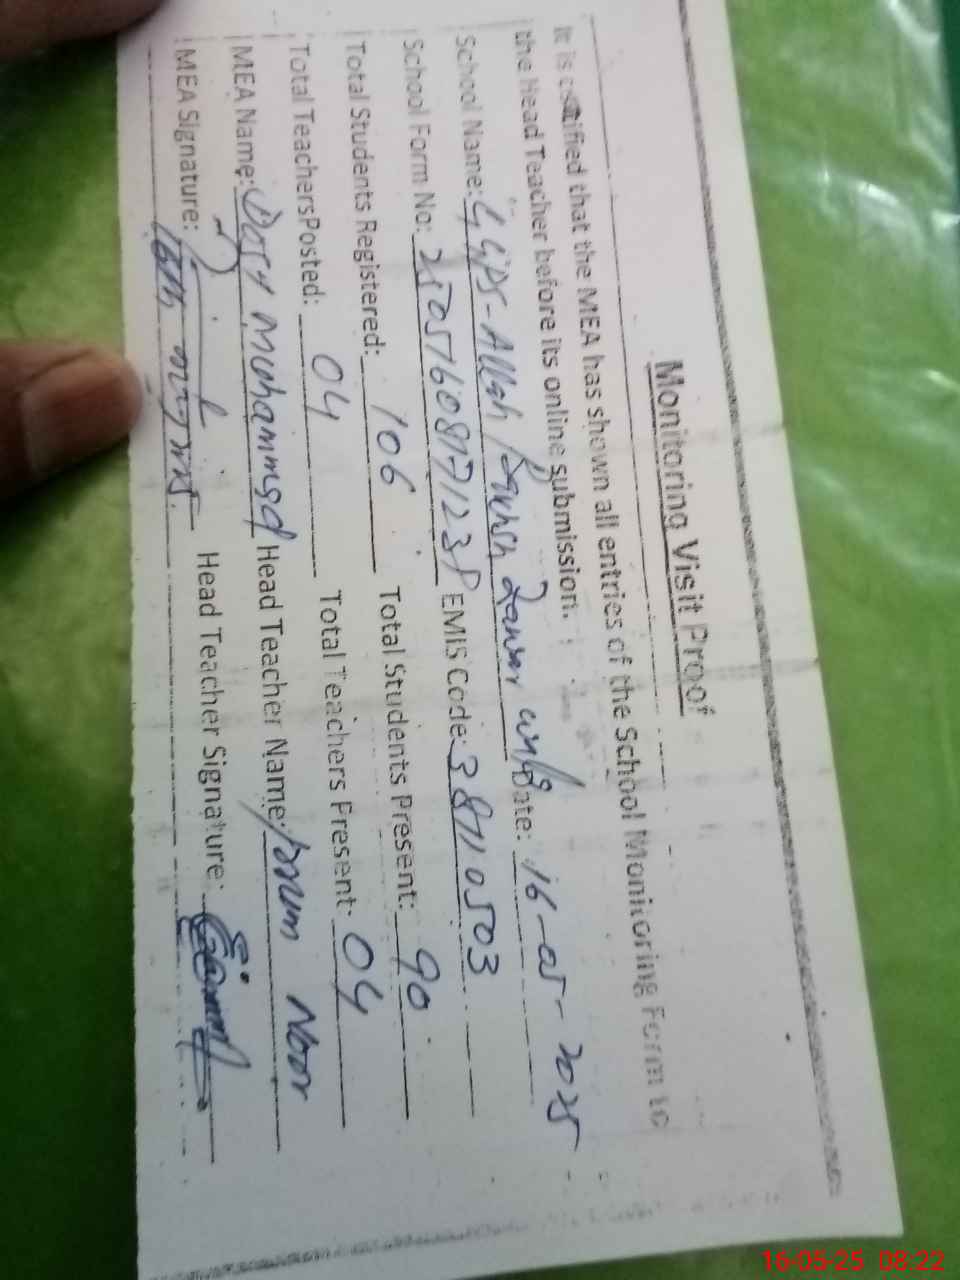 Monitoring Visit Proof
It is certified that the MEA has shown all entries of the School Monitoring Form to
the Head Teacher before its online submission.
School Name: GGPS-Allah Bakhsh Date: 16-05-2025
School Form No: EMIS Code: 38710503
Total Students Registered: 106 Total Students Present: 90
Total TeachersPosted: 04 Total Teachers Present: 04
MEA Name: Dost Muhammad Head Teacher Name: Noor
MEA Signature: Head Teacher Signature:
16-05-25 08:22